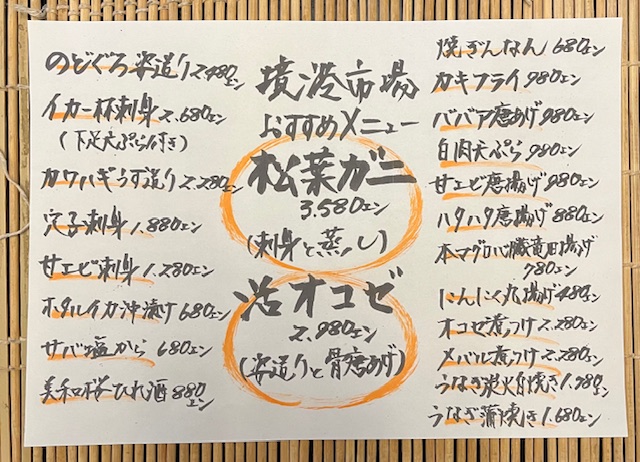 のどぐろ姿造り2.480エン
イカ一杯刺身2.680エン
(下足天ぷら付き)
カワハギうす造り2.280エン
穴子刺身1.880エン
甘エビ刺身1.280エン
ホタルイカ沖漬け680エン
サバ塩から680エン
美和桜ひれ酒880エン
境港市場
おすすめメニュー
松葉ガニ
3.580エン
(刺身と蒸し)
活オコゼ
2.980エン
(姿造りと骨唐あげ)
焼ぎんなん680エン
カキフライ980エン
ババア唐あげ980エン
白肉天ぷら980エン
甘エビ唐揚げ980エン
ハタハタ唐揚げ880エン
本マグロ心臓竜田揚げ
780エン
にんにく丸揚げ480エン
オコゼ煮つけ2.280エン
メバル煮つけ2.280エン
うなぎ炭火白焼き1.980エン
うなぎ蒲焼き1.680エン